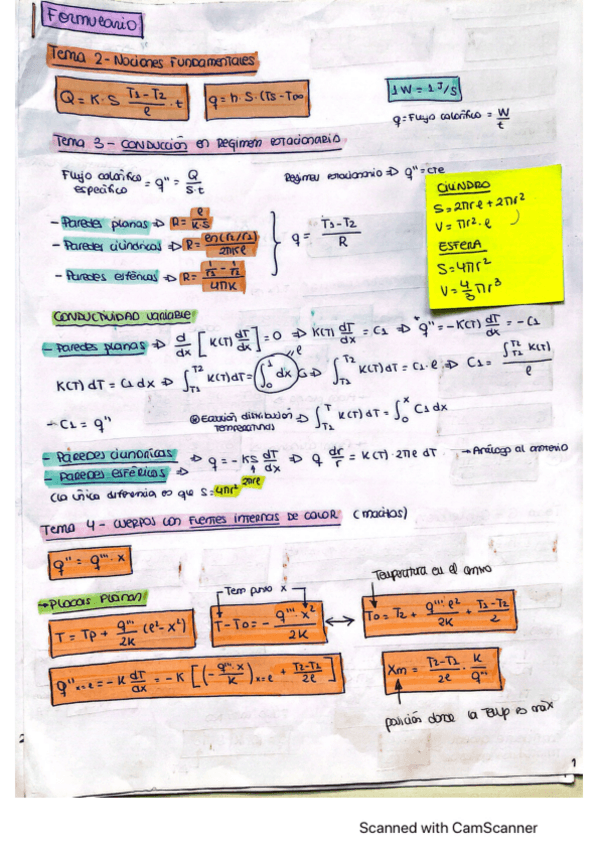 Formulario
Tema 2 - Nociones Fundamentales
Q = K · S (T1 - T2)/e · t
q = h · S · (Ts - T∞
1W = 1 J/s
q = Flujo calorífico = W/t
Tema 3 - CONDUCCIÓN en Régimen estacionario
Flujo calorífico específico = q'' = Q/(S·t)
Régimen estacionario => q'' = cte
CILINDRO
S = 2πre + 2πr²
V = πr² · e
ESFERA
S = 4πr²
V = 4/3 πr³
- Paredes planas => R = e/(K·S)
- Paredes cilíndricas => R = ln(r2/r1)/(2πKe)
- Paredes esféricas => R = (1/r1 - 1/r2)/(4πK)
q = (T1 - T2)/R
CONDUCTIVIDAD variable
- Paredes planas => d/dx [K(T) dT/dx] = 0 => K(T) dT/dx = C1 => q'' = -K(T) dT/dx = -C1
K(T) dT = C1 dx => ∫T1 T2 K(T) dT = ∫0 1 dx C => ∫T1 T2 K(T) dT = C1 · e => C1 = ∫T1 T2 K(T)/e
e
- C1 = q''
Ecuación distribución temperaturas => ∫T1 T K(T) dT = ∫0 x C1 dx
- Paredes cilíndricas
- Paredes esféricas => q = -KS dT/dx => q dr/r = K(T) · 2πe dT
-> Análogo al anterio
2πre
(la única diferencia es que S = 4πr²
Tema 4 - cuerpos con fuentes internas de calor (macizos)
q'' = q''' · x
-> Placas planas
Tem punto x
Temperatura en el centro
T = Tp + q'''/2K (e² - x²)
T - To = - q''' · x²/2K
To = T2 + q''' e²/2K + (T1 - T2)/2
q''x=e = -K dT/dx = -K [(- q''' · x/K)x=e + (T2 - T1)/2e]
Xm = (T2 - T1)/2e · K/q'''
posición donde la Temp es máx
1
Scanned with CamScanner